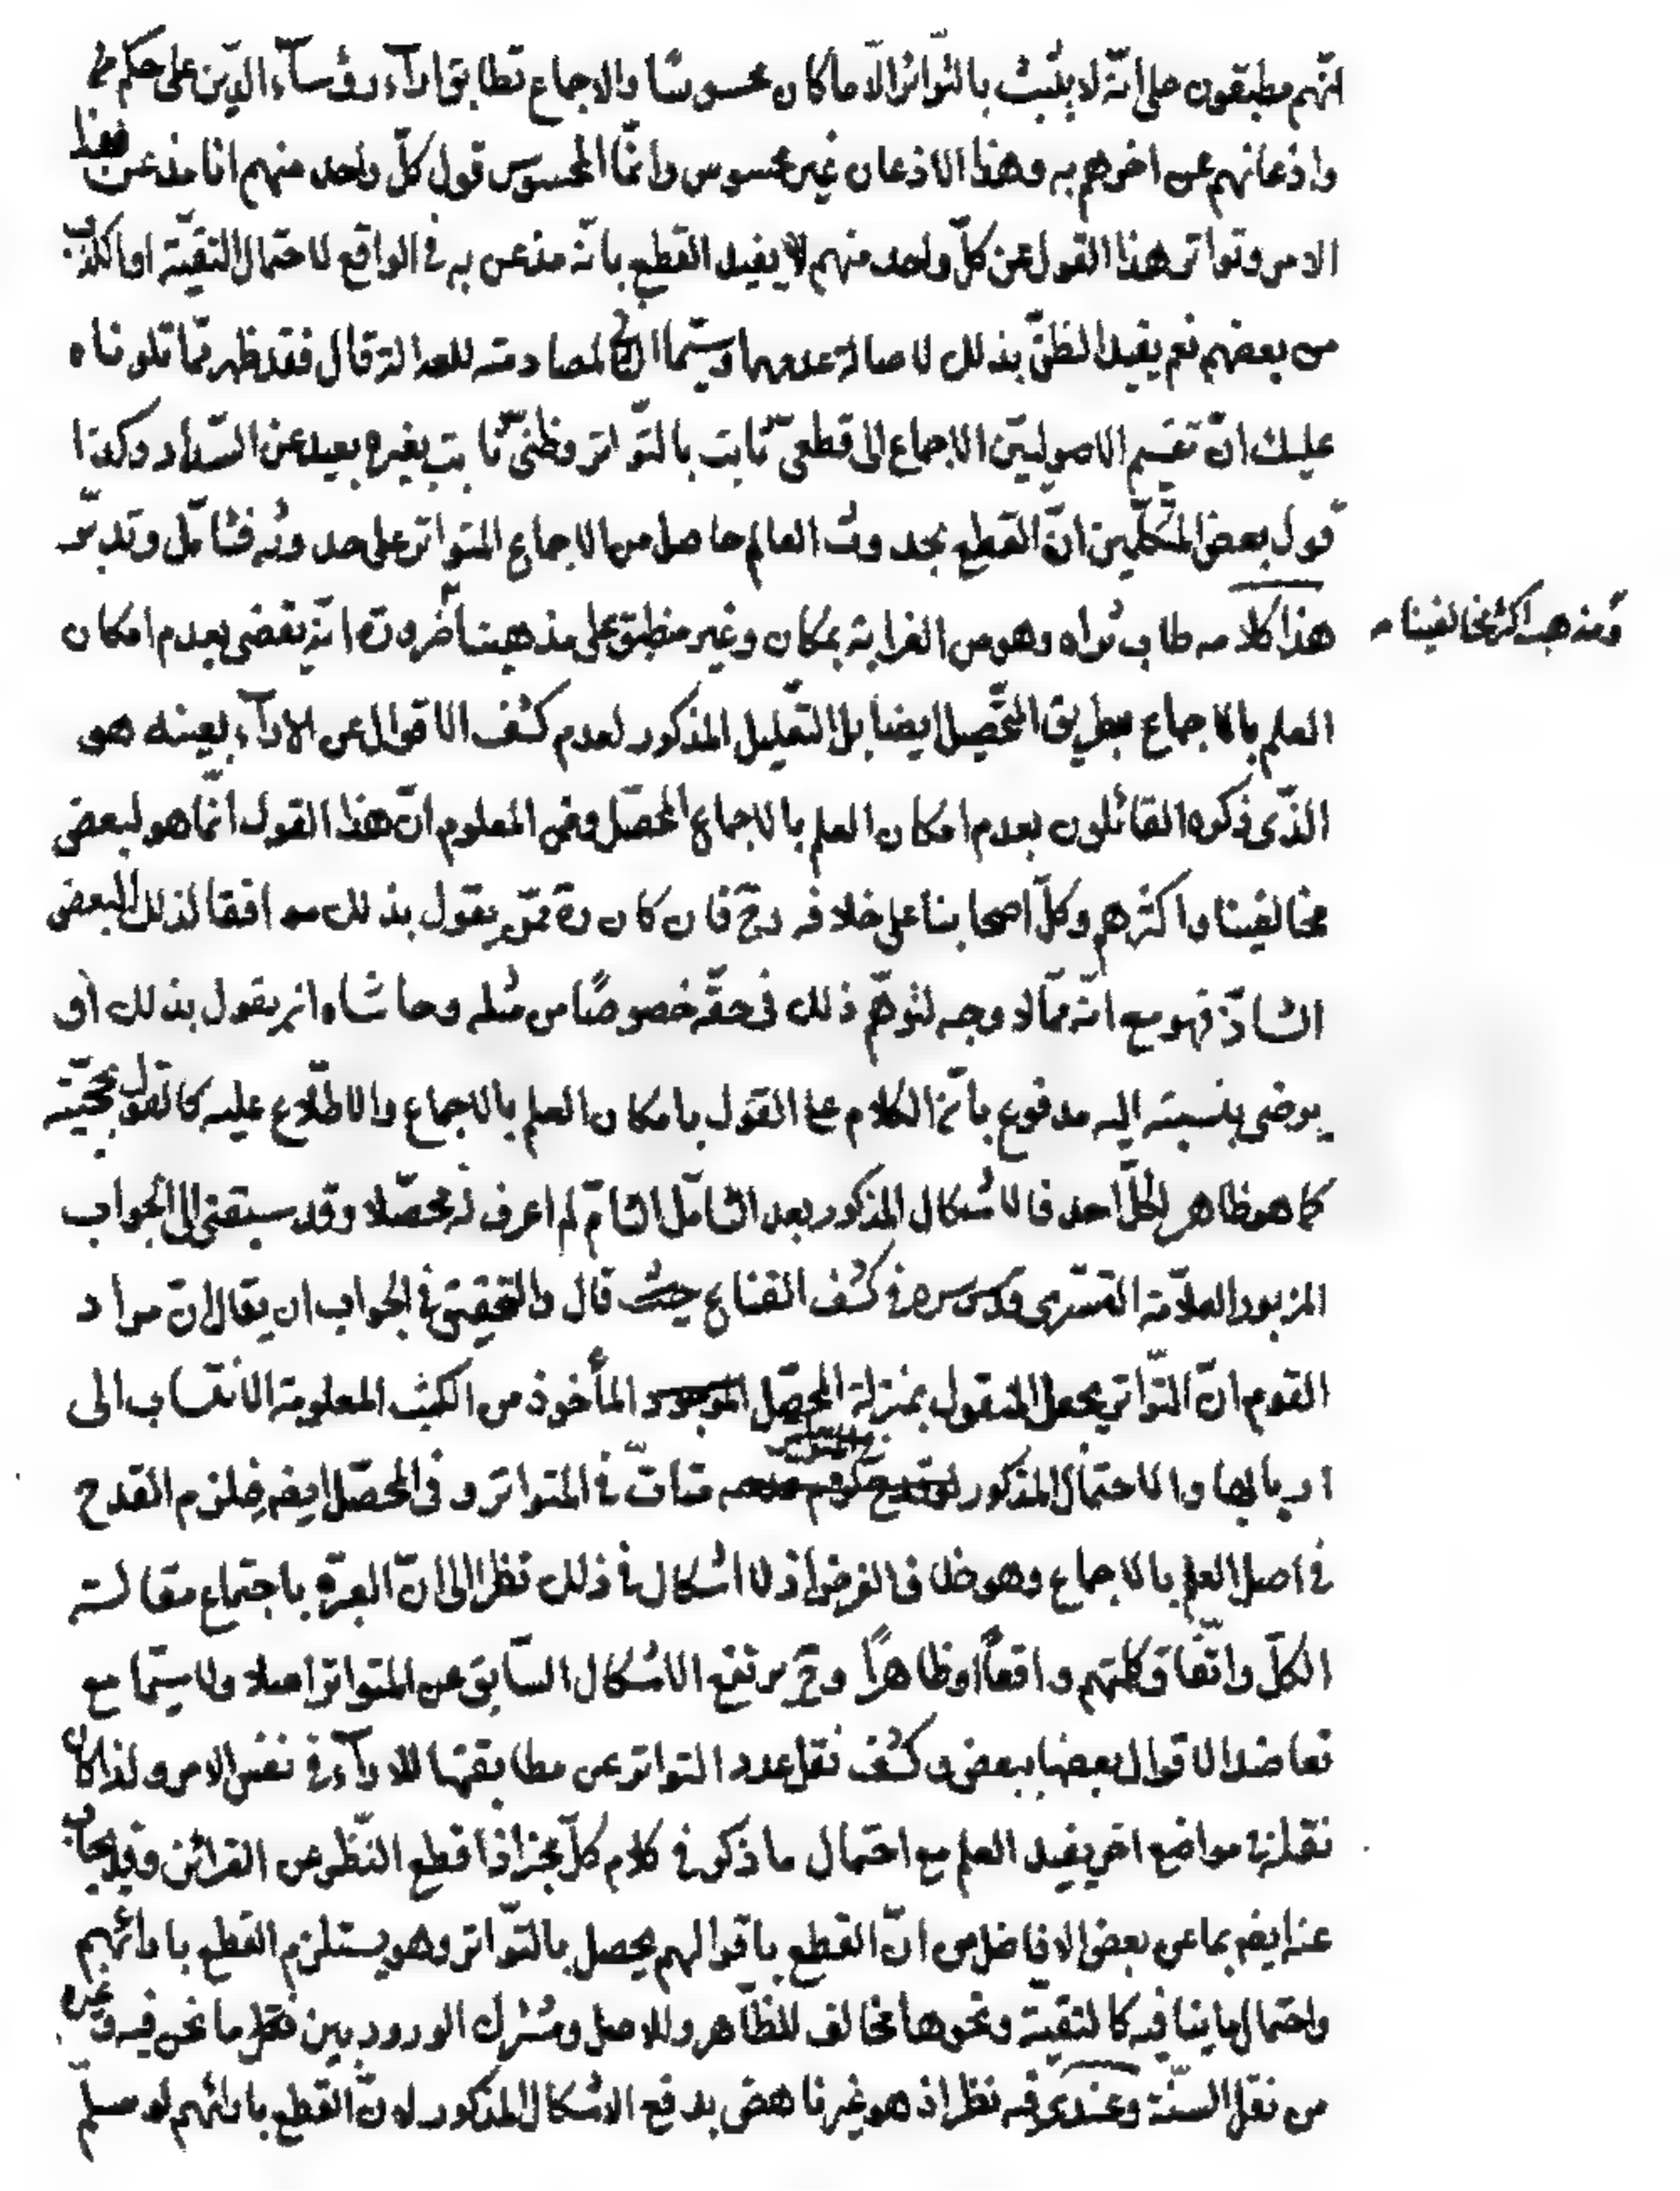 انّهم مطبقون على انّه لا يثبت بالتّواتر الّا ما كان محسوسًا والاجماع تطابق اراء رؤساء الدّين على حكم
واذعانهم عن اخرهم به وهذا الاذعان غير محسوس وانّما المحسوس قول كلّ واحد منهم انا مذعن بهذا
الامر وتواتر هذا القول عن كلّ واحد منهم لا يفيد القطع بانّه مذعن به في الواقع لاحتمال التقيّة او الكذب
من بعضهم نعم يفيد الظنّ بذلك لاصالة عدمهما وسيّما الكذب لمصادمته للعدالة قال فقد ظهر ممّا تلوناه
عليك انّ تقسيم الاصوليّين الاجماع الى قطعيّ ثابت بالتّواتر وظنّي ثابت بغيره بعيد عن السّداد وكذا
قول بعض المتكلّمين انّ القطع بحدوث العالم حاصل من الاجماع المتواتر على حدوثه فتامّل وتدبّر
هذا كلامه طاب ثراه وهو من الغرابة بمكان وغير منطبق على مذهبنا ضرورة انّه يقضى بعدم امكان
ومذهب اكثر مخالفينا
العلم بالاجماع بطريق التّحصيل ايضا بل التّعليل المذكور لعدم كشف الاقوال عن الاراء بعينه هو
الّذى ذكره القائلون بعدم امكان العلم بالاجماع المحصّل ومن المعلوم انّ هذا القول انّما هو لبعض
مخالفينا واكثرهم وكلّ اصحابنا على خلافه وح فان كان ره ممّن يقول بذلك موافقا لذلك البعض
الشاذّ فهو مع انّه ممّا لا وجه لتوهّم ذلك في حقّه خصوصًا من مثله وحاشاه انه يقول بذلك او
يرضى بنسبته اليه مدفوع بانّ الكلام على القول بامكان العلم بالاجماع والاطّلاع عليه كالقول بحجّيّته
كما هو ظاهر لكلّ احد فالاشكال المذكور بعد التامّل التامّ لم اعرف له محصّلا وقد سبقنى الى الجواب
المزبور العلّامة التّستري قدّس سره في كشف القناع حيث قال والتحقيق في الجواب ان يقال انّ مراد
القوم انّ التّواتر يجعل المنقول بمنزلة المحصّل المأخوذ من الكتب المعلومة الانتساب الى
اربابها والاحتمال المذكور متاتّ في المتواتر وفى المحصّل ايضا فيلزم القدح
في اصل العلم بالاجماع وهو خلاف الفرض اذ لا اشكال في ذلك نظرا الى انّ العبرة باجتماع مقالة
الكلّ واتّفاق كلمتهم واقعاً او ظاهرًا وح يرتفع الاشكال السّابق عن المتواتر اصلا ولا سيّما مع
تعاضد الاقوال بعضها ببعض وكشف نقل عدد التواتر عن مطابقتها للاراء في نفس الامر ولذا كان
نقله في مواضع اخر يفيد العلم مع احتمال ما ذكر في كلام كلّ مخبر اذا قطع النّظر عن القرائن وقد يجاب
عنه ايضا بما عن بعض الافاضل من انّ القطع باقوالهم يحصل بالتّواتر وهو يستلزم القطع بارائهم
واحتمال ما ينافيه كالتقيّة ونحوها مخالف للظّاهر وللاصل ومشترك الورود بين نقل ما نحن فيه وغيره
من نقل السنّة وعندى فيه نظر اذ هو غير ناهض بدفع الاشكال المذكور لانّ القطع بارائهم لو سلّم